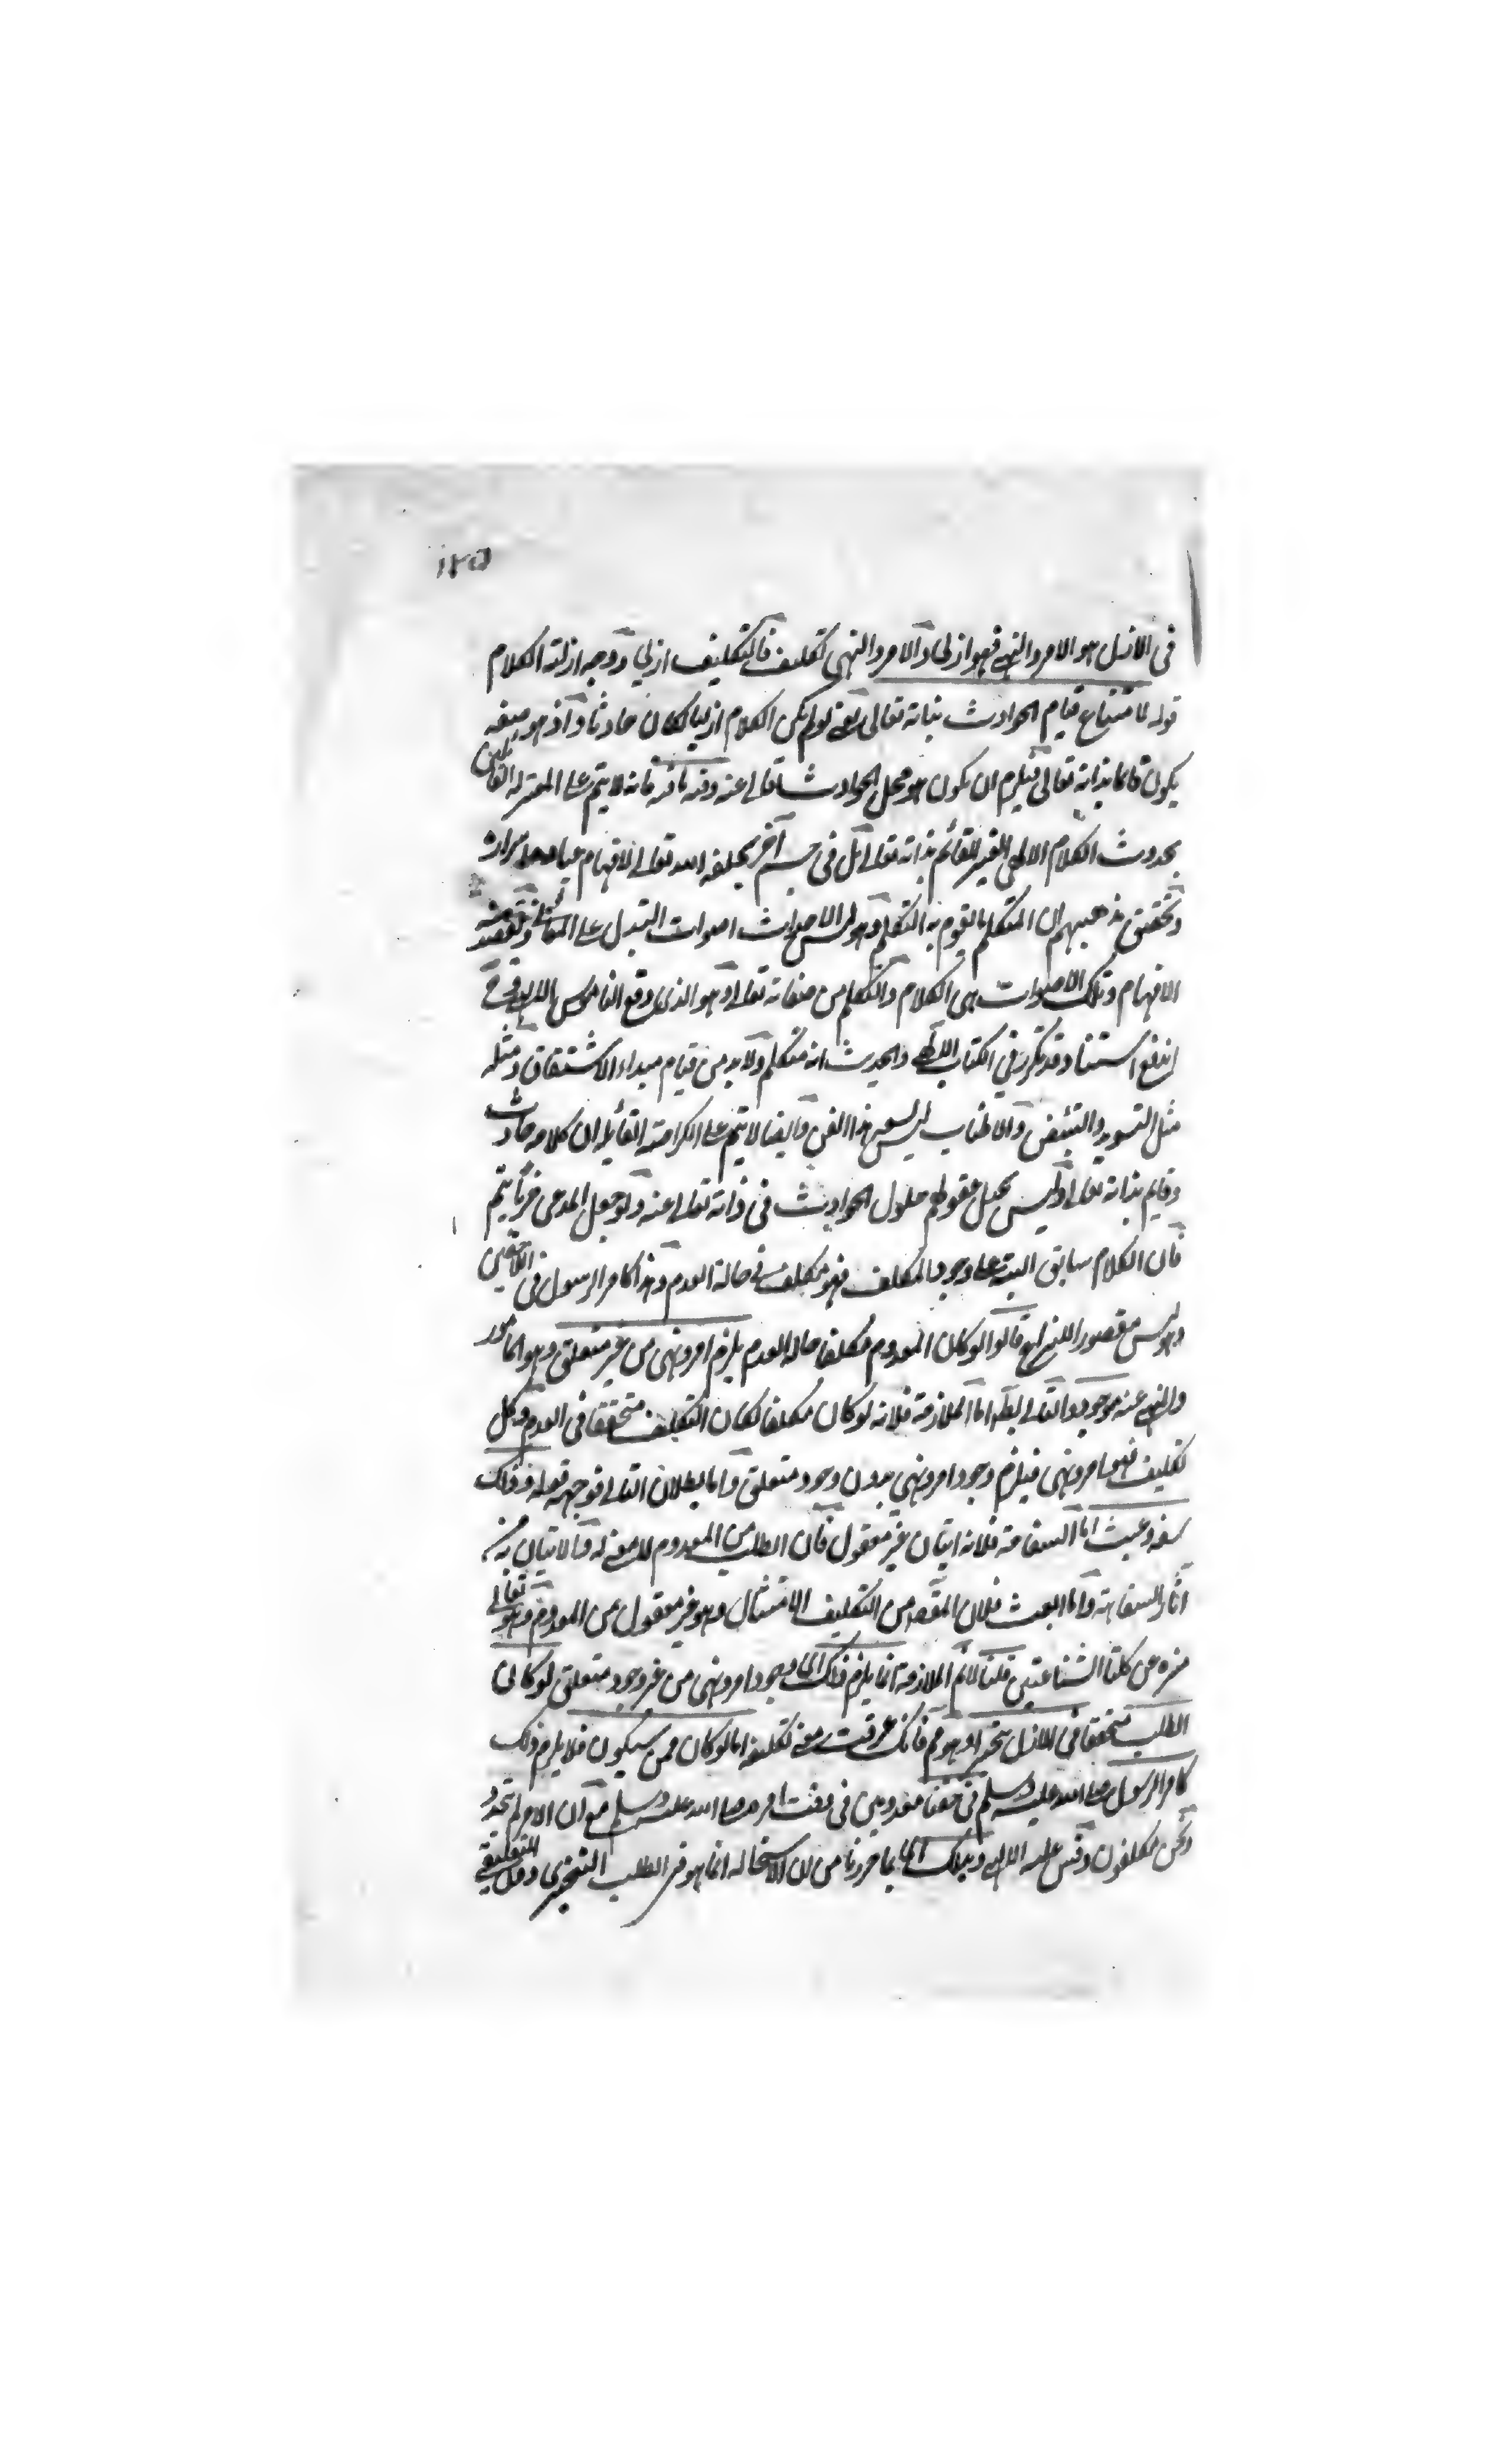 ١٢٥
في الازل هو الامر والنهي فهو ازلي والامر والنهي تكليف فالتكليف ازلي ووجه ازلية الكلام
قوله لامتناع قيام الحوادث بذاته تعالى يعني لو لم يكن الكلام ازليا لكان حادثا واذ هو صفة
يكون قائما بذاته تعالى فيلزم ان يكون هو محل الحوادث تعالى عنه وفيه ما فيه فانه لا يتم على المعتزلة القائلين
بحدوث الكلام الالهي الغير القائم بذاته تعالى بل في جسم آخر يخلقه الله تعالى لافهام عباده مراده
وتحقيق مذهبهم ان المتكلم ما يقوم به التكلم وهو ليس الا احداث اصوات لتدل على المعاني
الافهام وتلك الاصوات هي الكلام والتكلم من صفاته تعالى وهو الذي وقع
اندفع استنا وقد تكرر في الكتاب الالهي والحديث انه متكلم ولا بد من قيام مبداء الاشتقاق ومثله
مثل التسويد والتبييض والاطناب ليس من هذا الفن وايضا لا يتم على الكرامية القائلة ان كلامه حادث
وقايم بذاته تعالى وليس يحيل عقولهم حلول الحوادث في ذاته تعالى عنه ولو جعل المدعى يتم
فان الكلام سابق البتة على وجود المكلف فهو مكلف في حالة العدم وهذا كامر الرسول في اللاحقين
وليس مقصور اللزوم قالوا لو كان المعدوم مكلفا حالة العدم يلزم امر ونهي من غير متعلق وهو المأمور
والنهي عنه موجود والتالي بط اما الملازمة فلانه لو كان مكلفا لكان التكليف متحققا في العدم وكل
تكليف فهو امر ونهي فيلزم وجود امر ونهي بدون وجود متعلق واما بطلان التالي فوجهه قوله وذلك
سفه وعبث اما السفاهة فلانه اتيان غير معقول فان الطلب من المعدوم لا معنى له والاتيان به من
آثار السفاهة واما العبث فلان المقصد من التكليف الامتثال وهو غير معقول من المعدوم وهو تعالى
منزه عن كلتا الشناعتين قلنا لا نم الملازمة انما يلزم ذلك اي وجود امر ونهي من غير وجود متعلق لو كان
الطلب متحققا في الازل تنجيزا وهو مم فانك عرفت معنى تكليفه اما لو كان ممن سيكون فلا يلزم ذلك
كامر الرسول صلى الله عليه وسلم في حقنا معدومين في وقت امره صلى الله عليه وسلم مع ان الامر لم يتجدد
ونحن مكلفون وقس عليه الالهي وبذلك اي بما حررنا من ان الاستحالة انما هو في الطلب التنجيزي دون التعليقي